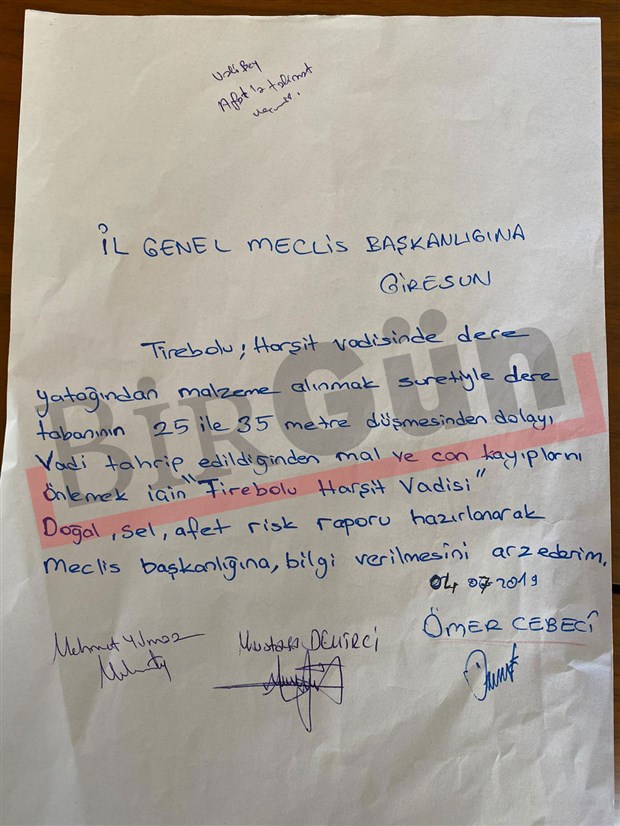 Vali Bey
Afet'e talimat
İL GENEL MECLİS BAŞKANLIGINA
GİRESUN
Tirebolu; Harşit vadisinde dere
yatağından malzeme alınmak suretiyle dere
tabanının 25 ile 35 metre düşmesinden dolayı
Vadi tahrip edildiğinden mal ve can kayıplarını
Önlemek için "Tirebolu Harşit Vadisi"
Doğal, sel, afet risk raporu hazırlanarak
Meclis başkanlığına, bilgi verilmesini arzederim.
04 07 2019
Mehmet Yılmaz
Mustafa DEMİRCİ
ÖMER CEBECİ
BİRGün